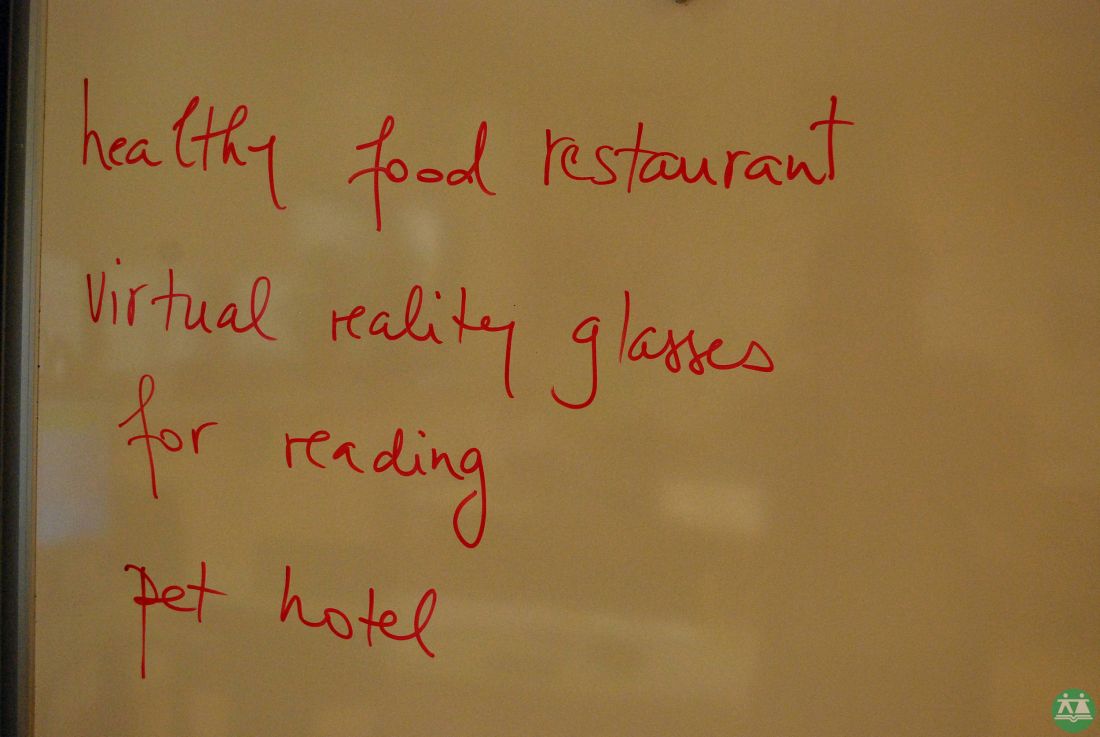 healthy food restaurant
virtual reality glasses
for reading
pet hotel